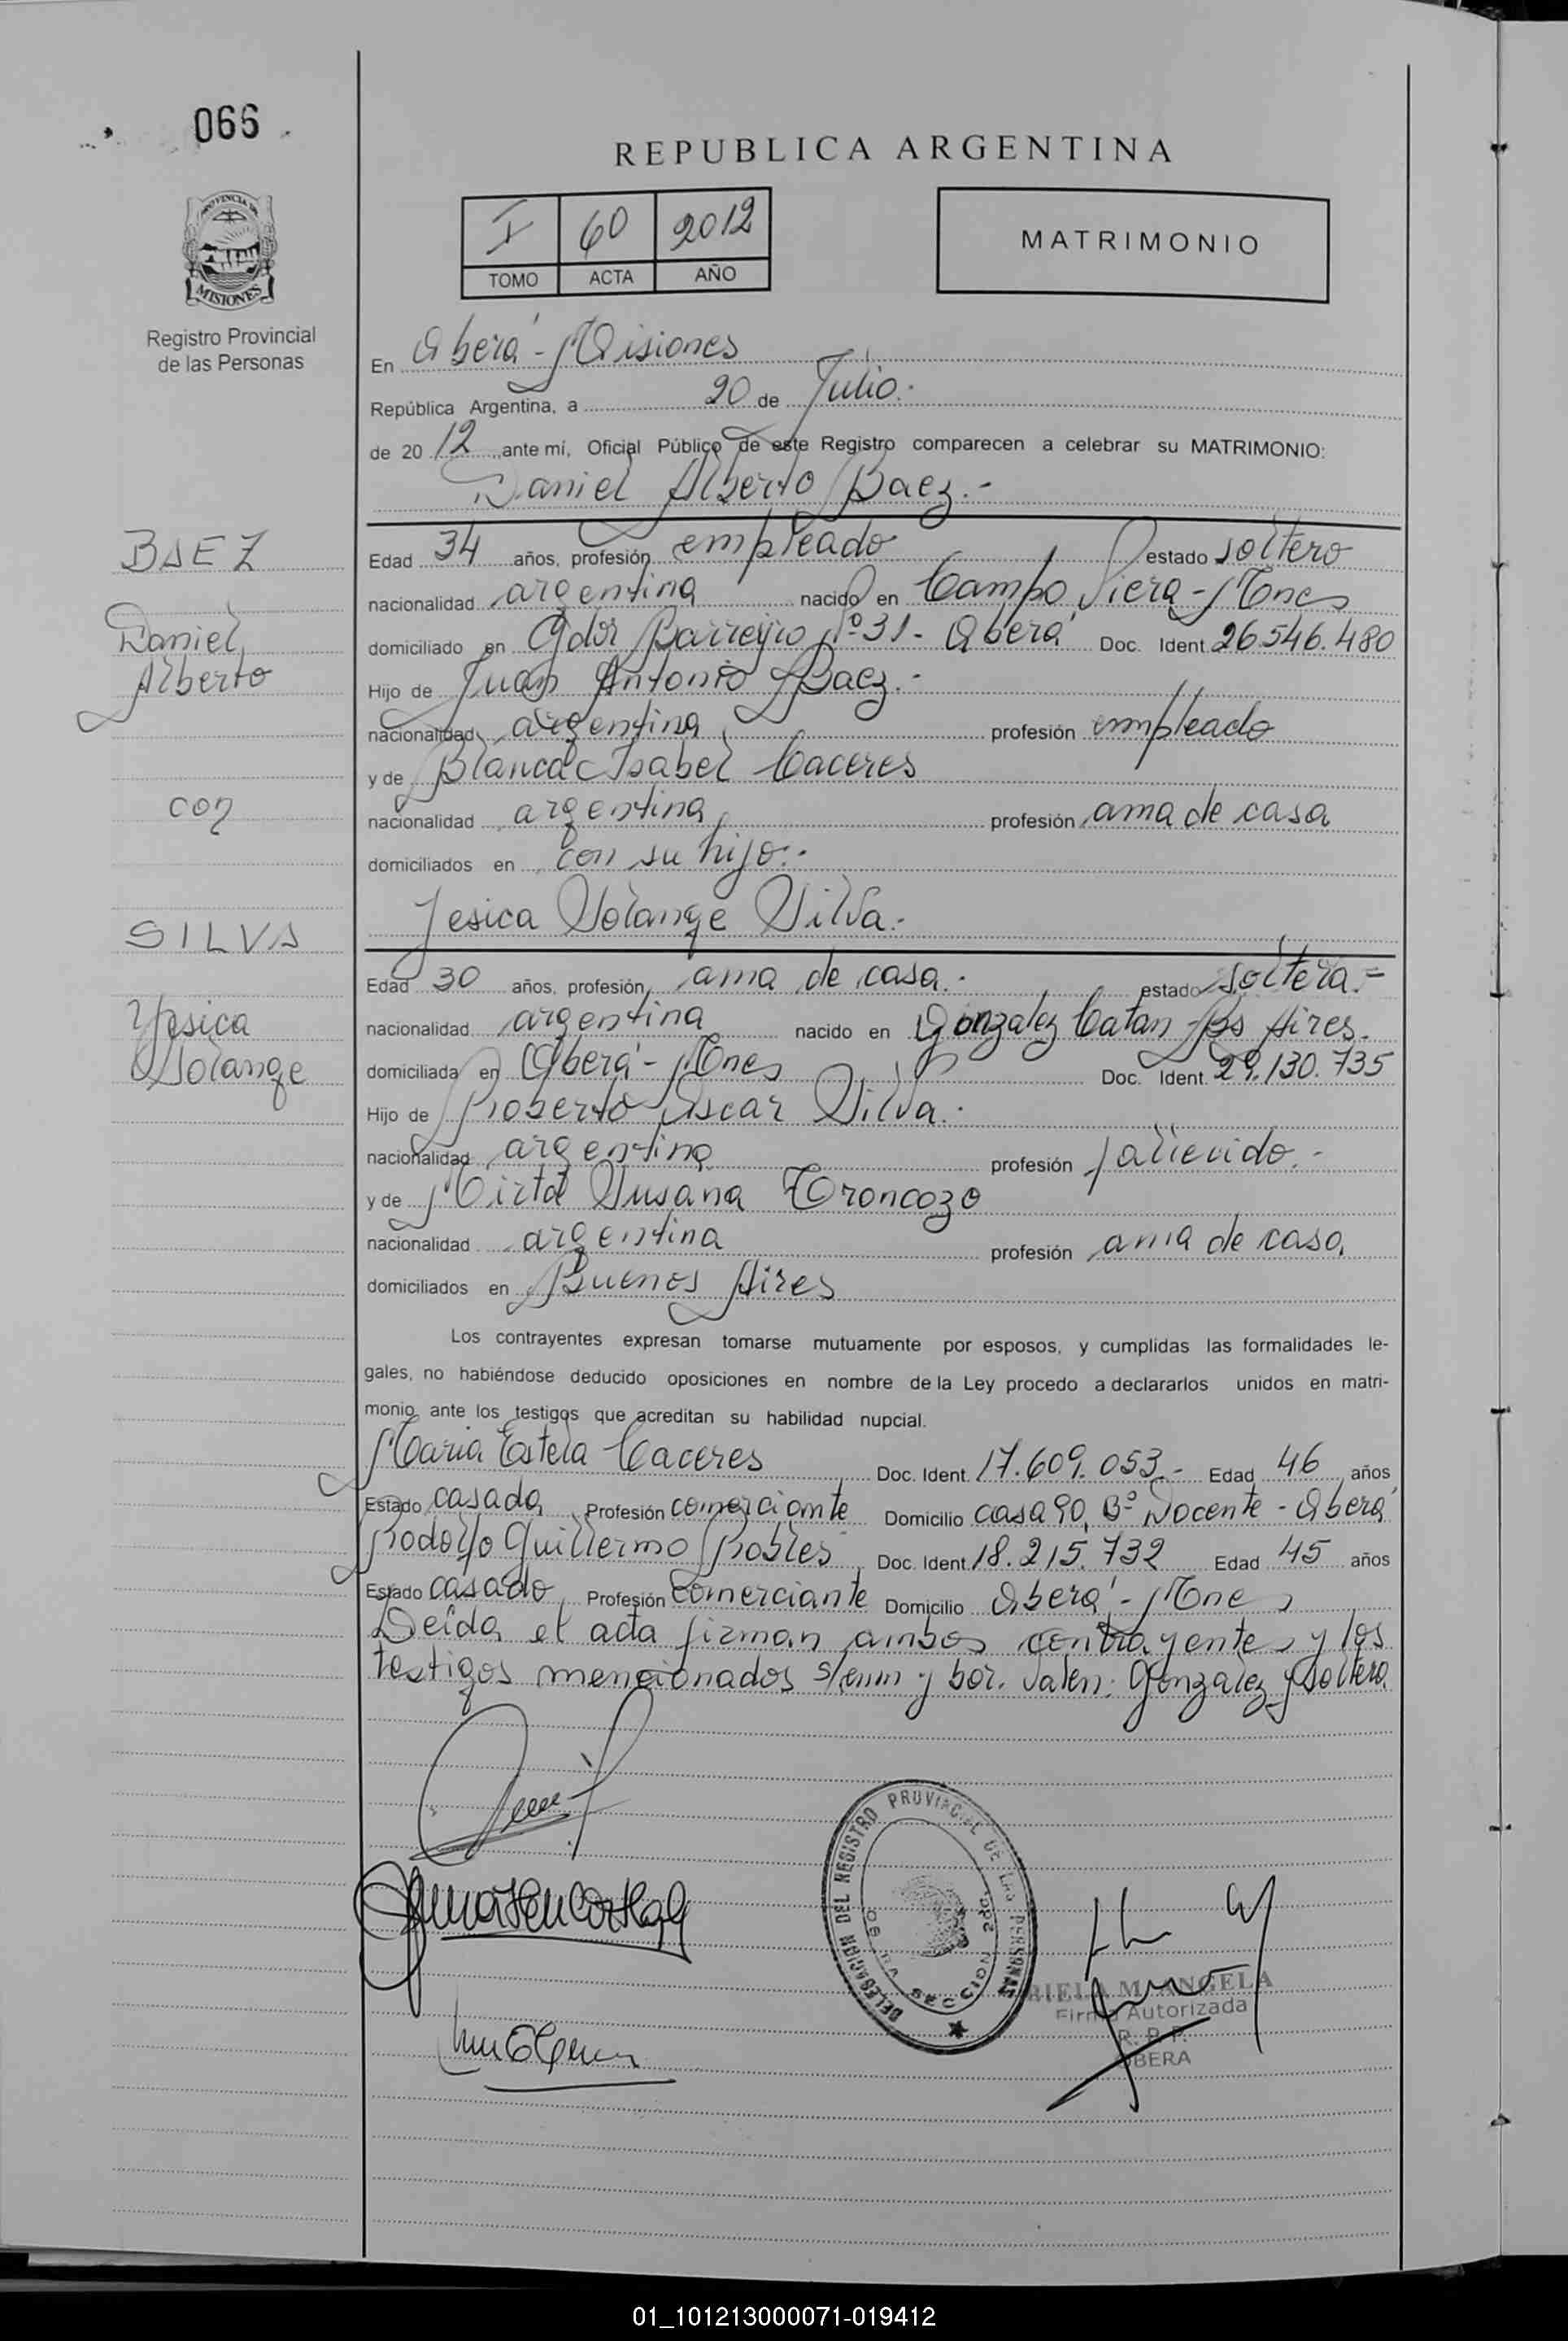 066
REPUBLICA ARGENTINA
I 60 2012
TOMO ACTA AÑO
MATRIMONIO
PROVINCIA DE
MISIONES
Registro Provincial
de las Personas
En Oberá - Misiones
República Argentina, a 20 de Julio.-
de 20 12 ante mí, Oficial Público de este Registro comparecen a celebrar su MATRIMONIO:
Daniel Alberto Baez.-
BAEZ
Daniel
Alberto
con
SILVA
Yesica
Solange
Edad 34 años, profesión empleado estado soltero
nacionalidad argentina nacido en Campo Viera - Mnes
domiciliado en Gdor Barreyro Nº 31 - Oberá Doc. Ident. 26.546.480
Hijo de Juan Antonio Baez.-
nacionalidad argentina profesión empleado
y de Blanca Isabel Caceres
nacionalidad argentina profesión ama de casa
domiciliados en con su hijo.-
Jesica Solange Silva.-
Edad 30 años, profesión ama de casa.- estado soltera.-
nacionalidad argentina nacido en Gonzalez Catan - Bs Aires.
domiciliada en Oberá - Mnes Doc. Ident. 29.130.735
Hijo de Roberto Oscar Silva.-
nacionalidad argentina profesión fallecido.-
y de Mirta Susana Troncozo
nacionalidad argentina profesión ama de casa
domiciliados en Buenos Aires
Los contrayentes expresan tomarse mutuamente por esposos, y cumplidas las formalidades le-
gales, no habiéndose deducido oposiciones en nombre de la Ley procedo a declararlos unidos en matri-
monio ante los testigos que acreditan su habilidad nupcial.
Maria Estela Caceres Doc. Ident. 17.609.053.- Edad 46 años
Estado casada Profesión comerciante Domicilio casa 90 Bº Docente - Oberá
Rodolfo Guillermo Robles Doc. Ident. 18.215.732 Edad 45 años
Estado casado Profesión comerciante Domicilio Oberá - Mnes
Leída el acta firman ambos contrayentes y los
testigos mencionados s/enm y bor. Valen: Gonzalez y soltera
DELEGACION DEL REGISTRO PROVINCIAL DE LAS PERSONAS
SECCION 2da.
Firma Autorizada
R. P. P.
OBERA
01_101213000071-019412